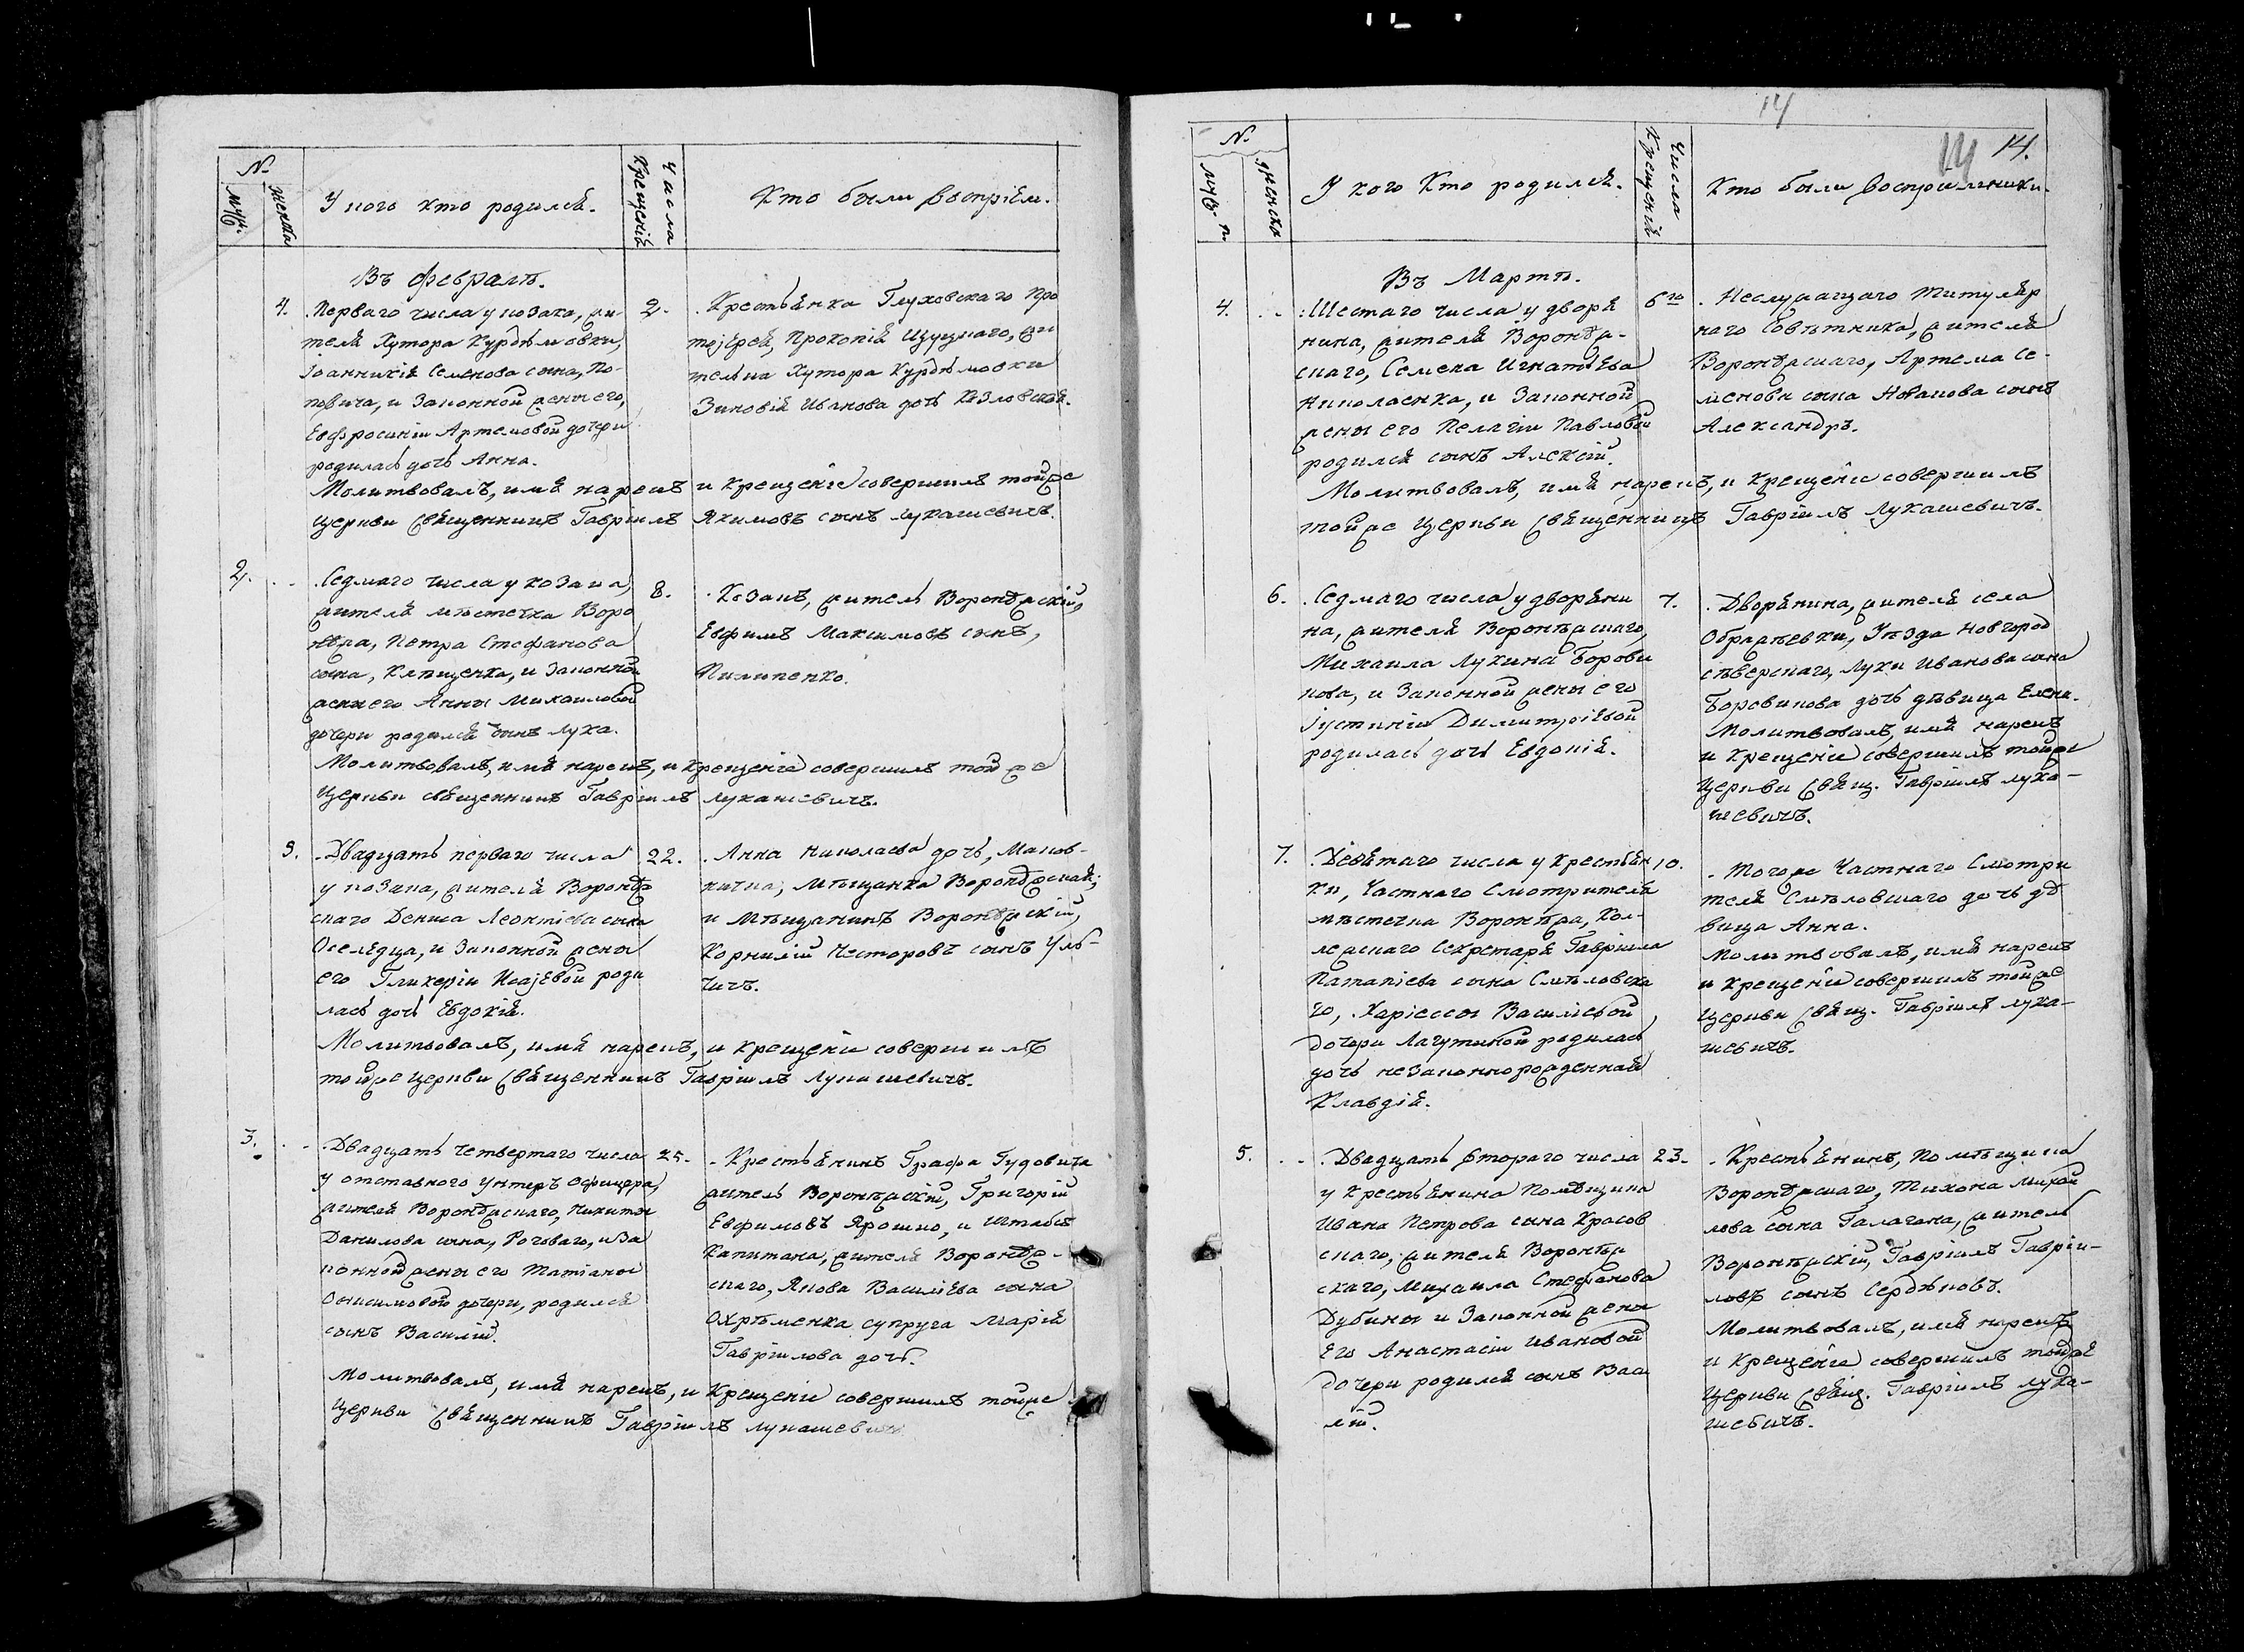 №
муж.
женска
У кого кто родился.
Числа
Крещенія
Кто были воспріем.
Въ Февралѣ.
4. Перваго числа у козака, жи-
теля Хутора Курдюмовки,
Іоанникія Семенова сына, По-
повича, и Законной жены его,
Евфросиніи Артемовой дочери
родилась дочь Анна.
2. Крестьянка Глуховскаго Про
тоіерея, Прокопія Щуцкаго, жи
тельна Хутора Курдюмовки
Зиновія Иванова дочь Козловская.
Молитвовалъ, имя нарекъ и Крещеніе совершилъ тойже
Церкви Священникъ Гавріилъ Якимовъ сынъ Лукашевичъ.
2. Седмаго числа у козака,
жителя мѣстечка Воро
нѣжа, Петра Стефанова
сына, Клященка, и Законной
жены его Анны Михайловой
дочери родился сынъ Лука.
8. Козакъ, житель Воронѣжскій,
Евфимъ Максимовъ сынъ,
Пилипенко.
Молитвовалъ, имя нарекъ, и Крещеніе совершилъ той же
Церкви священникъ Гавріилъ Лукашевичъ.
5. Двадцать перваго числа
у козака, жителя Воронѣж
скаго Дениса Леонтіева сына
Оселедца, и Законной жены
его Гликеріи Исаіевой роди
лась дочь Евдокія.
22. Анна Николаева дочь, Маков-
кична, Мѣщанка Воронѣжская;
и Мѣщанинъ Воронѣжскій,
Корнилій Несторовъ сынъ Уль-
чичъ.
Молитвовалъ, имя нарекъ, и Крещеніе совершилъ
тойже Церкви Священникъ Гавріилъ Лукашевичъ.
3. Двадцать четвертаго числа
у отставного Унтеръ Офицера,
жителя Воронѣжскаго, Никиты
Данилова сына, Роговаго, и За
конной жены его Татіаны
Онисимовой дочери, родился
сынъ Василій.
25. Крестьянинъ Графа Гудовича
житель Воронѣжскій, Григорій
Евфимовъ Ярошко, и Штабсъ
Капитана, жителя Воронѣж-
скаго, Якова Василіева сына
Охрѣменка супруга Марія
Гавріилова дочь.
Молитвовалъ, имя нарекъ, и Крещеніе совершилъ тойже
Церкви Священникъ Гавріилъ Лукашевичъ
14
14 14.
№
муж.
женска
У кого Кто родился.
Числа
Крещеній
Кто были воспріемники.
Въ Мартѣ.
4. Шестаго числа у дворя
нина, жителя Воронѣж-
скаго, Семена Игнатіева
Николаенка, и Законной
жены его Пелагіи Павловой
родился сынъ Алексій.
6го Неслужащаго Титуляр
наго Совѣтника, жителя
Воронѣжскаго, Артема Се-
менова сына Новакова сынъ
Александръ.
Молитвовалъ, имя нарекъ, и Крещеніе совершилъ
тойже Церкви Священникъ Гавріилъ Лукашевичъ.
6. Седмаго числа у дворяни
на, жителя Воронѣжскаго,
Михаила Лукина Борови
кова, и Законной жены его
Іустиніи Димитріевой
родилась дочь Евдокія.
7. Дворянина, жителя села
Ображѣевки, Уѣзда Новгород
сѣверскаго, Луки Иванова сына
Боровикова дочь дѣвица Елена.
Молитвовалъ, имя нарекъ
и Крещеніе совершилъ тойже
Церкви Свящ. Гавріилъ Лука-
шевичъ.
7. Девятаго числа у Крестьян
ки, Частнаго Смотрителя
мѣстечка Воронѣжа, Кол-
лежскаго Секретаря Гавріила
Патапіева сына Смѣловска
го, Харіессы Василіевой
дочери Лагутиной родилась
дочь незаконнорожденная
Клавдія.
10. Тогоже Частнаго Смотри
теля Смѣловскаго дочь дѣ
вица Анна.
Молитвовалъ, имя нарекъ
и Крещеніе совершилъ тойже
Церкви Свящ. Гавріилъ Лука-
шевичъ.
5. Двадцать втораго числа
у Крестьянина Помѣщика
Ивана Петрова сына Красов
скаго, жителя Воронѣж
скаго, Михаила Стефанова
Дубины и Законной жены
Его Анастасіи Ивановой
дочери родился сынъ Васи
лій.
23. Крестьянинъ, Помѣщика
Воронѣжскаго, Тихона Михай
лова сына Галагана, житель
Воронѣжскій, Гавріилъ Гаврии-
ловъ сынъ Сердюковъ.
Молитвовалъ, имя нарекъ
и Крещеніе совершилъ тойже
Церкви Свящ. Гавріилъ Лука-
шевичъ.